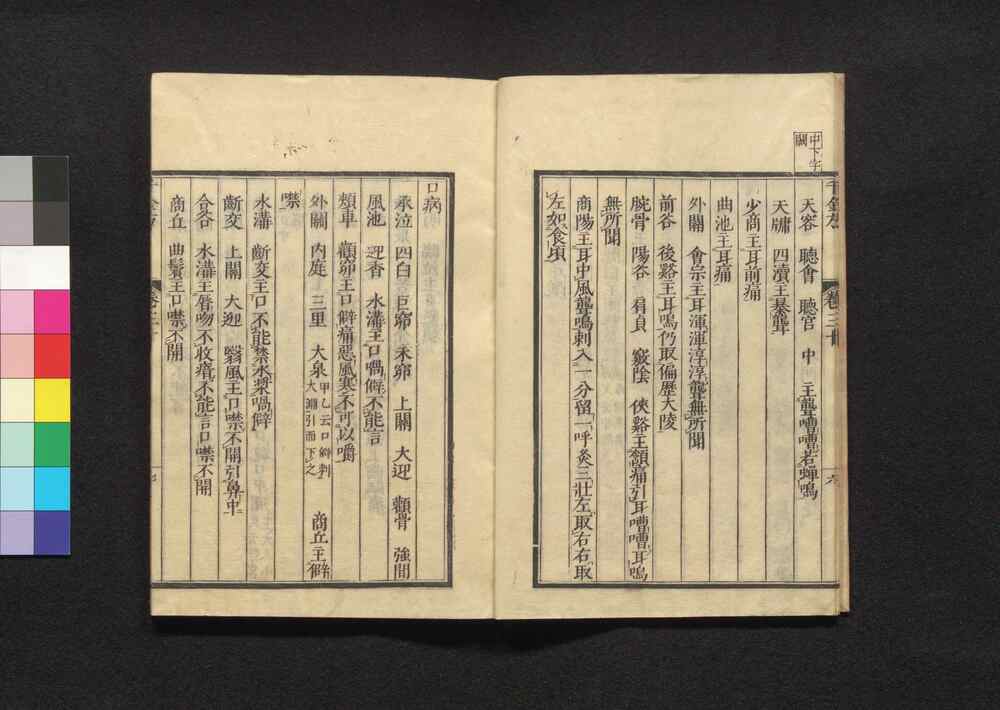 中下字
闕
千金方 卷三十
天容 聽會 聽宫 中 主聾嘈嘈若蟬鳴
天牖 四瀆主暴聾
少商主耳前痛
曲池主耳痛
外關 會宗主耳渾渾淳淳聾無所聞
前谷 後谿主耳鳴仍取偏歷大陵
腕骨 陽谷 肩貞 竅陰 俠谿主頷痛引耳嘈嘈耳鳴
無所聞
商陽主耳中風聾鳴刺入一分留一呼灸三壯左取右右取
左如食頃
口病
承泣 四白 巨窌 禾窌 上關 大迎 顴骨 強間
風池 迎香 水溝主口喎僻不能言
頰車 顴窌主口僻痛惡風寒不可以嚼
外關 内庭 三里 大泉甲乙云口僻刺大淵引而下之 商丘主僻
噤
水溝 齗交主口不能禁水漿喎僻
齗交 上關 大迎 翳風主口噤不開引鼻中
合谷 水溝主唇吻不收瘖不能言口噤不開
商丘 曲鬢主口噤不開